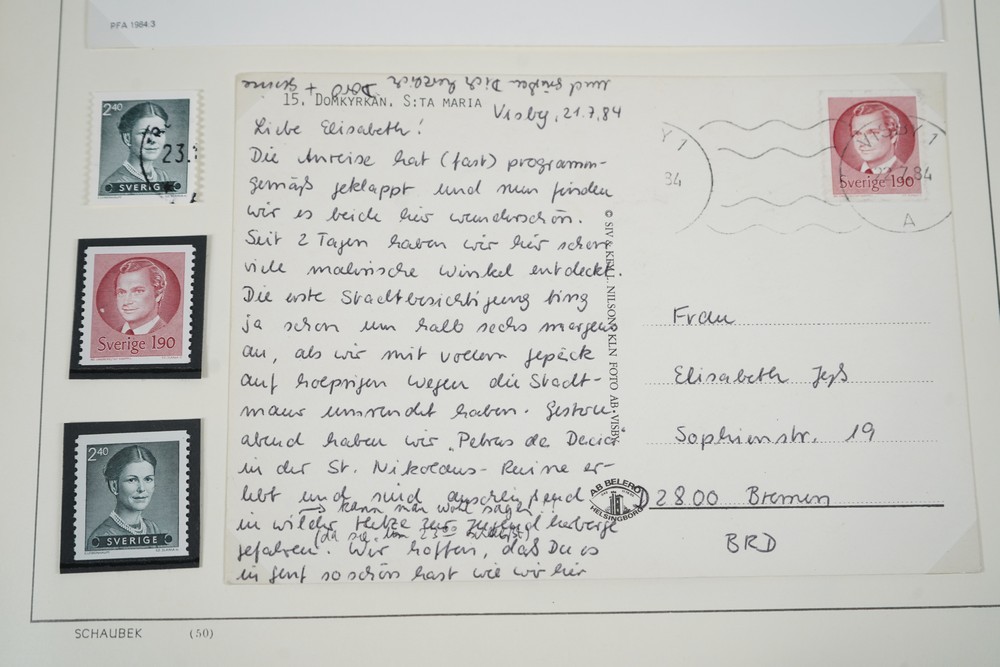 PFA 1984:3
2.40
23.
SVERIGE
Sverige 1.90
2.40
SVERIGE
und grüßen Dich herzlich Doro +
15. DOMKYRKAN, S:TA MARIA
Visby, 21.7.84
Liebe Elisabeth!
Die Anreise hat (fast) programm-
gemäß geklappt und nun finden
wir es beide hier wunderschön.
Seit 2 Tagen haben wir hier schon
viele malerische Winkel entdeckt.
Die erste Stadtbesichtigung fing
ja schon um halb sechs morgens
an, als wir mit vollem Gepäck
auf hoeprigen Wegen die Stadt-
mauer umrundet haben. Gestern
abend haben wir "Petrus de Dacia"
in der St. Nikolaus-Ruine er-
lebt und sind anschließend
→ kann man wohl sagen
in wilder Hetze zur Jugendherberge
(da sie um 23⁰⁰ schließt)
gefahren. Wir hoffen, daß Du es
in Genf so schön hast wie wir hier
© SIV & KJELL NILSONS KLN FOTO AB • VISBY
A.B BELERO
HELSINGBORG
Y 1
84
Sverige 1.90
VISBY 1
7.84
A
Frau
Elisabeth
Sophienstr. 19
D 2800 Bremen
BRD
SCHAUBEK (50)